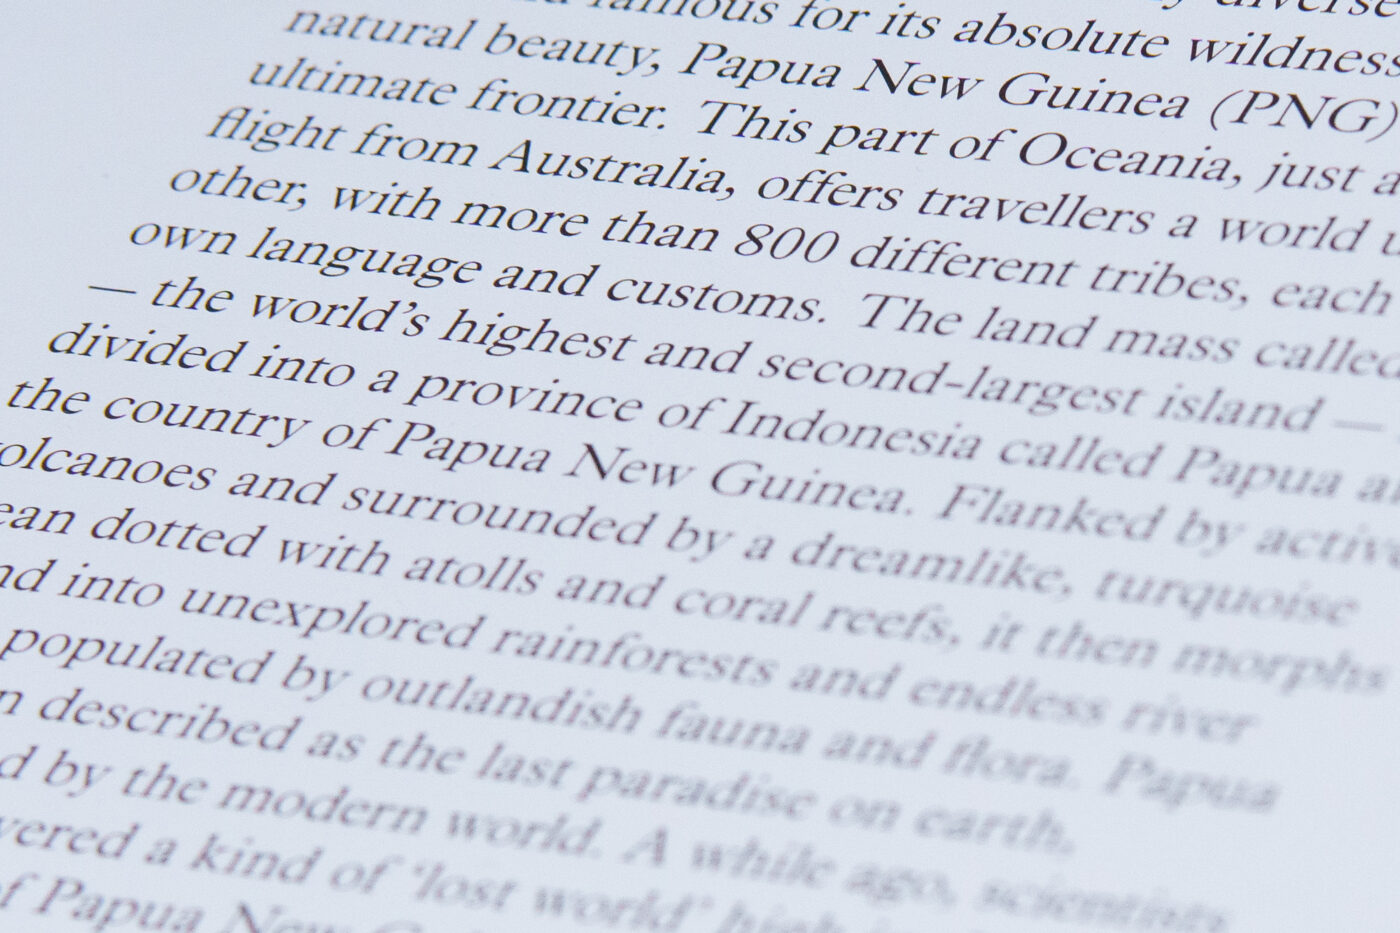 famous for its absolute wildness
natural beauty, Papua New Guinea (PNG)
ultimate frontier. This part of Oceania, just a
flight from Australia, offers travellers a world
other, with more than 800 different tribes, each
own language and customs. The land mass called
— the world’s highest and second-largest island —
divided into a province of Indonesia called Papua
the country of Papua New Guinea. Flanked by active
volcanoes and surrounded by a dreamlike, turquoise
dotted with atolls and coral reefs, it then morphs
into unexplored rainforests and endless river
populated by outlandish fauna and flora. Papua
described as the last paradise on earth,
by the modern world. A while ago, scientists
a kind of ‘lost world’ high
of Papua New